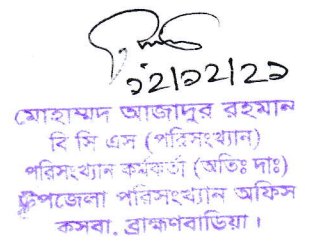 ১২/১২/২১
মোহাম্মদ আজাদুর রহমান
বি সি এস (পরিসংখ্যান)
পরিসংখ্যান কর্মকর্তা (অতিঃ দাঃ)
উপজেলা পরিসংখ্যান অফিস
কসবা, ব্রাহ্মণবাড়িয়া।